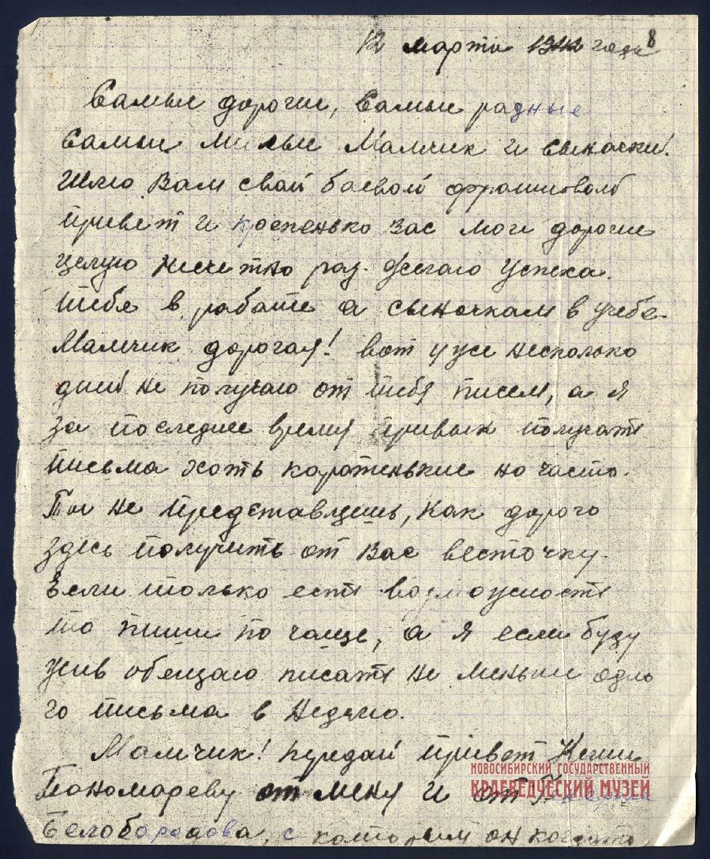 12 марта 1942 года 8
Самые дорогие, Самые радные
Самыи милыи Мамчик и сыночки.
Шлю Вам свой боевой фронтовой
привет и крепенько Вас мои дорогие
целую несчетно раз. Желаю успеха.
Тебе в работе а сыночкам в учебе.
Мамчик дорогая! Вот уже несколько
дней не получаю от тебя писем, а я
за последнее время привык получать
письма хоть коротенькие но часто.
Ты не представляешь, как дорого
здесь получить от Вас весточку.
Если только есть возможность
то пиши по чаще, а я если буду
жив обещаю писать не меньше одно
го письма в неделю.
Мамчик! Передай привет
Пономареву от меня и от
Белобородова, с которым он когда то
НОВОСИБИРСКИЙ ГОСУДАРСТВЕННЫЙ
КРАЕВЕДЧЕСКИЙ МУЗЕЙ